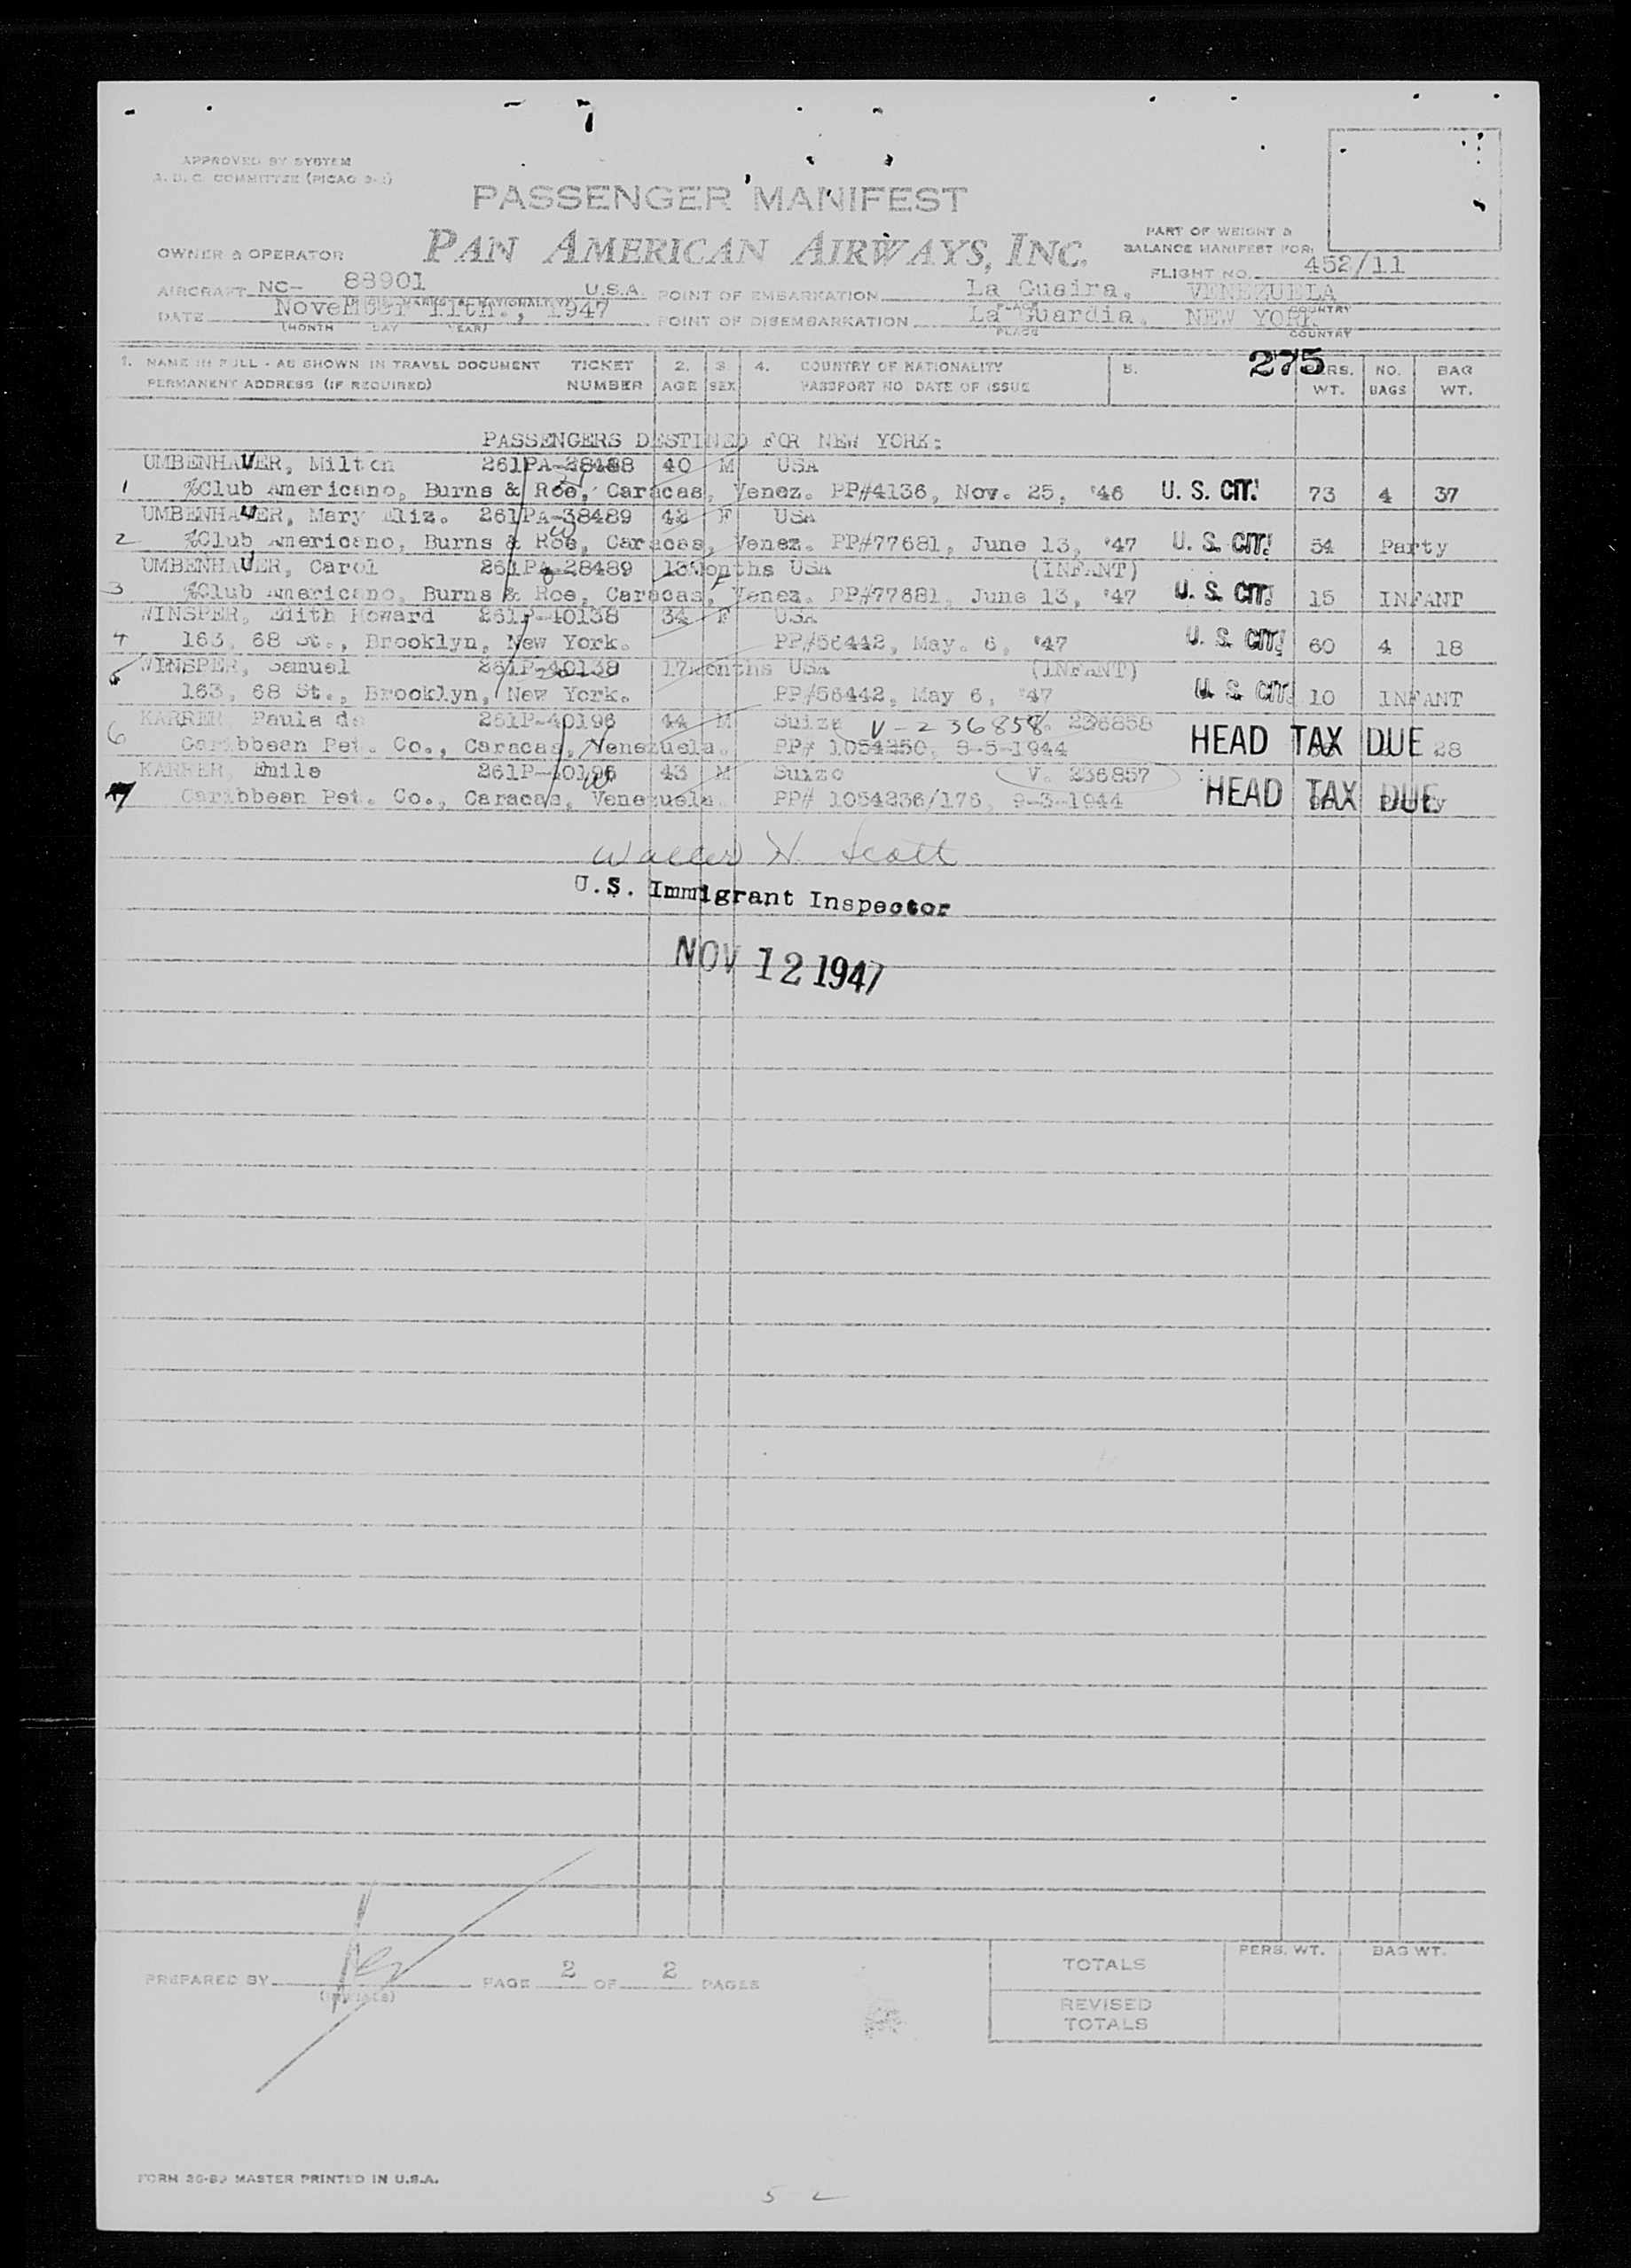 APPROVED BY SYSTEM
A. D. C. COMMITTEE (PICAO 3-1)
PASSENGER MANIFEST
PAN AMERICAN AIRWAYS, INC.
PART OF WEIGHT &
BALANCE MANIFEST FOR:
OWNER & OPERATOR
FLIGHT NO. 452/11
AIRCRAFT NC- 88901 U.S.A. POINT OF EMBARKATION La Guaira, VENEZUELA
DATE November 11th., 1947 POINT OF DISEMBARKATION La Guardia. NEW YORK
(MONTH DAY YEAR) PLACE COUNTRY
275
1. NAME IN FULL - AS SHOWN IN TRAVEL DOCUMENT TICKET 2. 3. 4. COUNTRY OF NATIONALITY 5. PERS. NO. BAG
PERMANENT ADDRESS (IF REQUIRED) NUMBER AGE SEX PASSPORT NO. DATE OF ISSUE WT. BAGS WT.
PASSENGERS DESTINED FOR NEW YORK:
UMBENHAUER, Milton 261PA-28488 40 M USA
1 %Club Americano, Burns & Roe, Caracas, Venez. PP#4136, Nov. 25, '46 U. S. CIT. 73 4 37
UMBENHAUER, Mary Eliz. 261PA-38489 42 F USA
2 %Club Americano, Burns & Roe, Caracas, Venez. PP#77681, June 13, '47 U. S. CIT. 54 Party
UMBENHAUER, Carol 261PA-28489 13months USA (INFANT)
3 %Club Americano, Burns & Roe, Caracas, Venez. PP#77681, June 13, '47 U. S. CIT. 15 INFANT
WINSPER, Edith Howard 261P-40138 34 F USA
4 163, 68 St., Brooklyn, New York. PP#56442, May. 6, '47 U. S. CIT. 60 4 18
WINSPER, Samuel 261P-40138 17months USA (INFANT)
5 163, 68 St., Brooklyn, New York. PP#56442, May 6, '47 U. S. CIT. 10 INFANT
KARRER, Paula de 261P-40196 44 M Suiza V-236858 236858
6 Caribbean Pet. Co., Caracas, Venezuela. PP# 1054250, 9-5-1944 HEAD TAX DUE 28
KARRER, Emile 261P-40196 43 M Suizo V. 236857
7 Caribbean Pet. Co., Caracas, Venezuela. PP# 1054236/176, 9-3-1944 HEAD TAX DUE
Walter H. Scott
U.S. Immigrant Inspector
NOV 12 1947
PREPARED BY PAGE 2 OF 2 PAGES
TOTALS PERS. WT. BAG WT.
REVISED
TOTALS
FORM 36-82 MASTER PRINTED IN U.S.A.
5 2